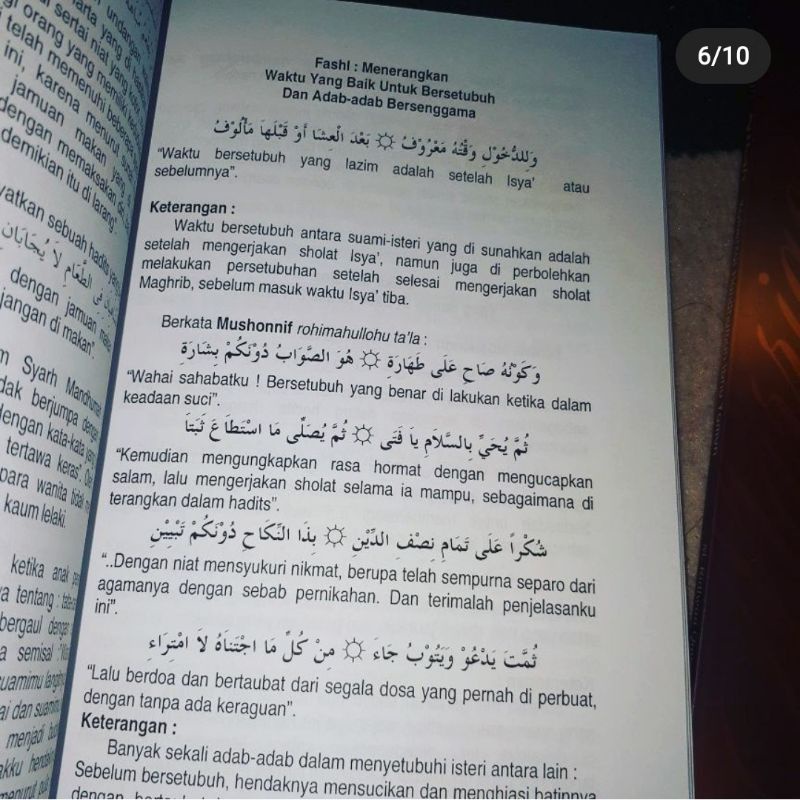 6/10
undangan
serta yang di
sertai niat yang
orang yang memiliki
telah memenuhi beberapa
ini, karena menurut
jamuan makan yang
dengan memaksakan
demikian itu di larang".
sebuah hadits yang
الطَّعَامِ لاَ يُجَابَانِ
dengan jamuan
jangan di makan".
Syarh Mandhumat
berjumpa dengan
dengan kata-kata yang
tertawa keras".
para wanita tidak
kaum lelaki.
ketika anak
tentang : tata
bergaul dengan
semisal :
suamimu
dan suami
menjadi
hendaknya
menurut
Fashl : Menerangkan
Waktu Yang Baik Untuk Bersetubuh
Dan Adab-adab Bersenggama
وَلِلدُّخُوْلِ وَقْتُهُ مَعْرُوْفُ ۞ بَعْدَ الْعِشَا أَوْ قَبْلَهَا مَأْلُوْفُ
"Waktu bersetubuh yang lazim adalah setelah Isya' atau
sebelumnya".
Keterangan :
Waktu bersetubuh antara suami-isteri yang di sunahkan adalah
setelah mengerjakan sholat Isya', namun juga di perbolehkan
melakukan persetubuhan setelah selesai mengerjakan sholat
Maghrib, sebelum masuk waktu Isya' tiba.
Berkata Mushonnif rohimahullohu ta'la :
وَكَوْنُهُ صَاحِ عَلَى طَهَارَة ۞ هُوَ الصَّوَابُ دُوْنَكُمْ بِشَارَة
"Wahai sahabatku ! Bersetubuh yang benar di lakukan ketika dalam
keadaan suci".
ثُمَّ يُحَيِّ بِالسَّلاَمِ يَا فَتَى ۞ ثُمَّ يُصَلِّى مَا اسْتَطَاعَ ثَبَتَا
"Kemudian mengungkapkan rasa hormat dengan mengucapkan
salam, lalu mengerjakan sholat selama ia mampu, sebagaimana di
terangkan dalam hadits".
شُكْراً عَلَى تَمَامِ نِصْفِ الدِّيْنِ ۞ بِذَا النِّكَاحِ دُوْنَكُمْ تَبْيِيْنِ
"..Dengan niat mensyukuri nikmat, berupa telah sempurna separo dari
agamanya dengan sebab pernikahan. Dan terimalah penjelasanku
ini".
ثُمَّتَ يَدْعُوْ وَيَتُوْبُ جَاءَ ۞ مِنْ كُلِّ مَا اجْتَنَاهُ لاَ امْتِرَاءِ
"Lalu berdoa dan bertaubat dari segala dosa yang pernah di perbuat,
dengan tanpa ada keraguan".
Keterangan :
Banyak sekali adab-adab dalam menyetubuhi isteri antara lain :
Sebelum bersetubuh, hendaknya mensucikan dan menghiasi batinnya
dengan